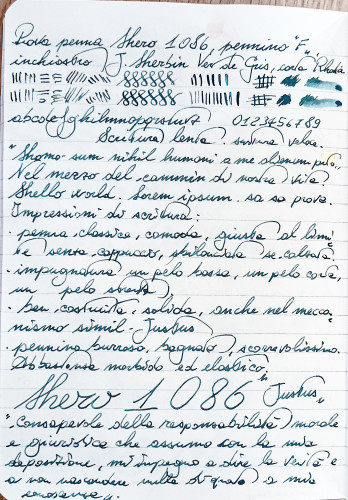 Prova penna Shero 1086, pennino "F",
inchiostro J. Herbin Ver de Gris, carta Rhodia
abcdefghilmnopqrstuvz 0123456789
Scrittura lenta. scrittura veloce.
"Homo sum nihil humani a me alienum puto"
Nel mezzo del cammin di nostra vita
Hello world. Lorem ipsum. sa sa prova.
Impressioni di scrittura:
- penna classica, comoda, giusta al limi-
te senza cappuccio, sbilanciata se calzato.
- impugnatura un pelo bassa, un pelo corta,
un pelo stretta,
- ben costruita, solida, anche nel mecca-
nismo simil-Justus
- pennino burroso, bagnato, scorrevolissimo.
Abbastanza morbido ed elastico.
Shero 1086 "Justus"
"Consapevole della responsabilità morale
e giuridica che assumo con la mia
deposizione, mi impegno a dire la verità e
a non nascondere nulla di quanto a mia
conoscenza".